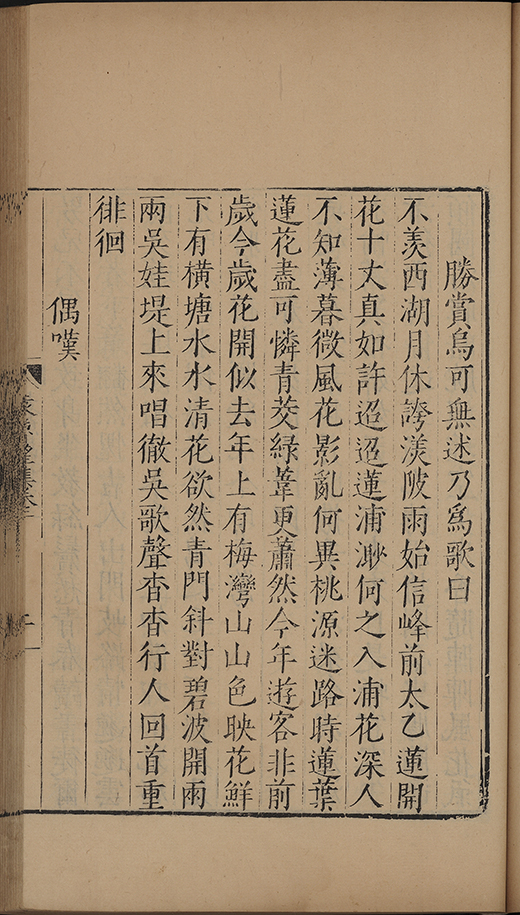 勝賞烏可無述乃爲歌曰
不羨西湖月休誇渼陂雨始信峰前太乙蓮開
花十丈真如許迢迢蓮浦渺何之入浦花深人
不知薄暮微風花影亂何異桃源迷路時蓮葉
蓮花盡可憐青茭綠葦更蕭然今年遊客非前
歲今歲花開似去年上有梅灣山山色映花鮮
下有橫塘水水清花欲然青門斜對碧波開兩
兩吳娃堤上來唱徹吳歌聲杳杳行人回首重
徘徊
偶嘆